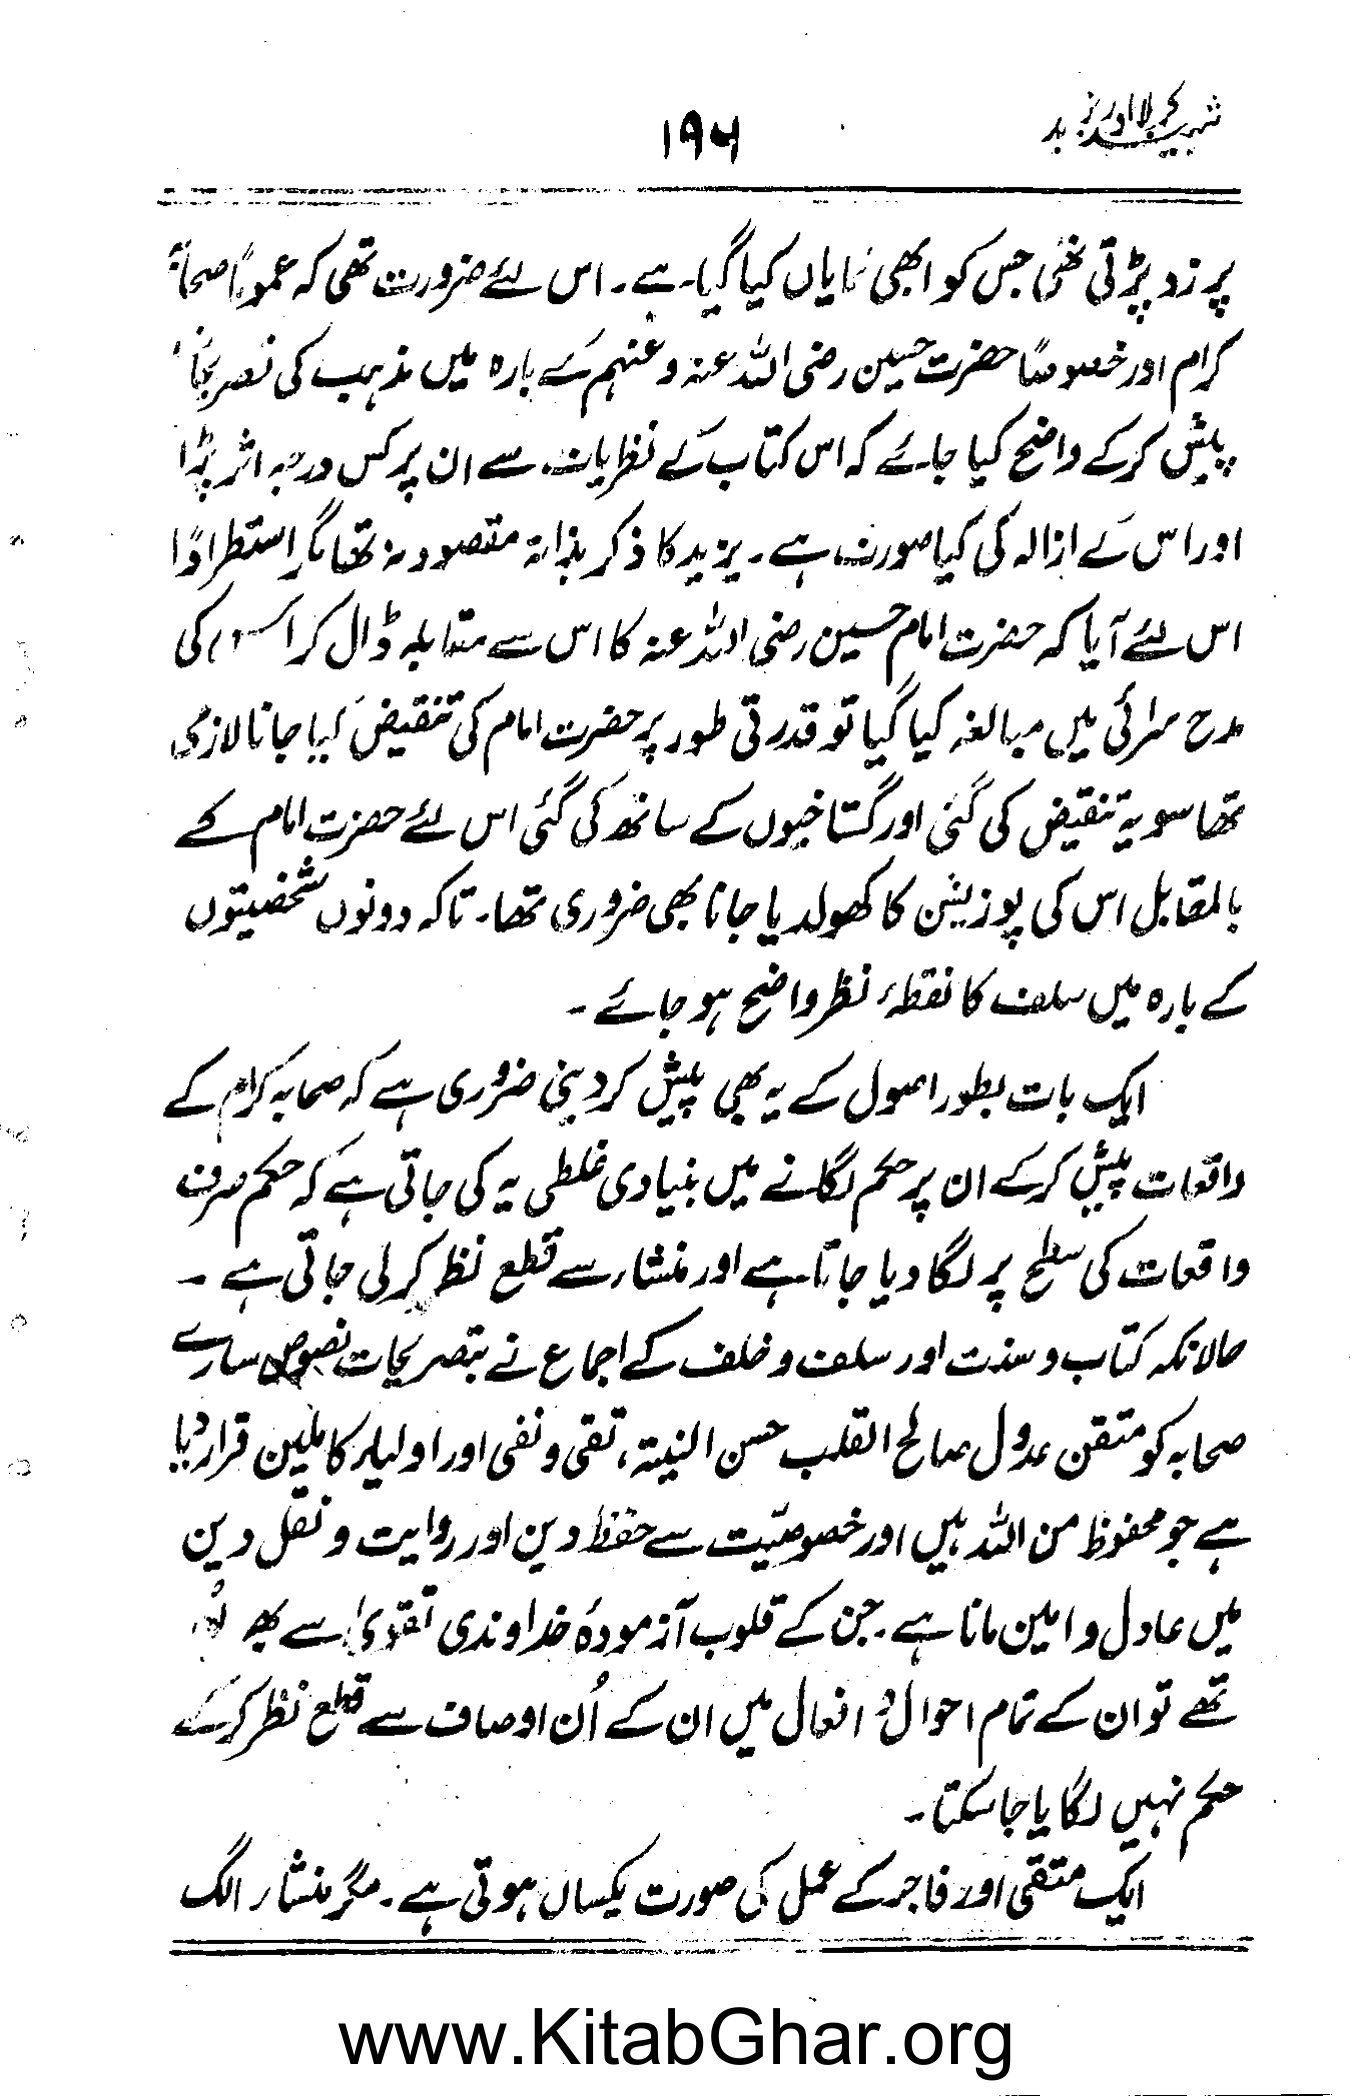 شہید کربلا اور یزید
۱۹۵
پر زد پڑتی تھی جس کو ابھی نمایاں کیا گیا ہے۔ اس لئے ضرورت تھی کہ عموماً صحابہ
کرام اور خصوصاً حضرت حسین رضی اللہ عنہ و عنہم کے بارہ میں مذہب کی تصریحات
پیش کرکے واضح کیا جائے کہ اس کتاب کے نظریات سے ان پر کس درجہ اثر پڑا
اور اس کے ازالہ کی کیا صورت ہے۔ یزید کا ذکر بذاتہ مقصود نہ تھا مگر استطراداً
اس لئے آیا کہ حضرت امام حسین رضی اللہ عنہ کا اس سے مقابلہ ڈال کر اس کی
مدح سرائی میں مبالغہ کیا گیا تو قدرتی طور پر حضرت امام کی تنقیض کیا جانا لازمی
تھا سو یہ تنقیض کی گئی اور گستاخیوں کے ساتھ کی گئی اس لئے حضرت امام کے
بالمقابل اس کی پوزیشن کا کھولدیا جانا بھی ضروری تھا۔ تاکہ دونوں شخصیتوں
کے بارہ میں سلف کا نقطۂ نظر واضح ہو جائے۔
ایک بات بطور اصول کے یہ بھی پیش کر دینی ضروری ہے کہ صحابہ کرام کے
واقعات پیش کرکے ان پر حکم لگانے میں بنیادی غلطی یہ کی جاتی ہے کہ حکم صرف
واقعات کی سطح پر لگا دیا جاتا ہے اور منشاء سے قطع نظر کر لی جاتی ہے۔
حالانکہ کتاب و سنت اور سلف و خلف کے اجماع نے بتصریحات نصوص سارے
صحابہ کو متقن عدول صالح القلب حسن النیتہ، تقی و نقی اور اولیاء کاملین قرار دیا
ہے جو محفوظ من اللہ ہیں اور خصوصیّت سے حفظ دین اور روایت و نقل دین
میں عادل و امین مانا ہے۔ جن کے قلوب آزمودۂ خداوندی تقویٰ سے بھرپور
تھے تو ان کے تمام احوال و افعال میں ان کے اُن اوصاف سے قطع نظر کرکے
حکم نہیں لگایا جا سکتا۔
ایک متقی اور فاجر کے عمل کی صورت یکساں ہوتی ہے۔ مگر منشاء الگ
www.KitabGhar.org